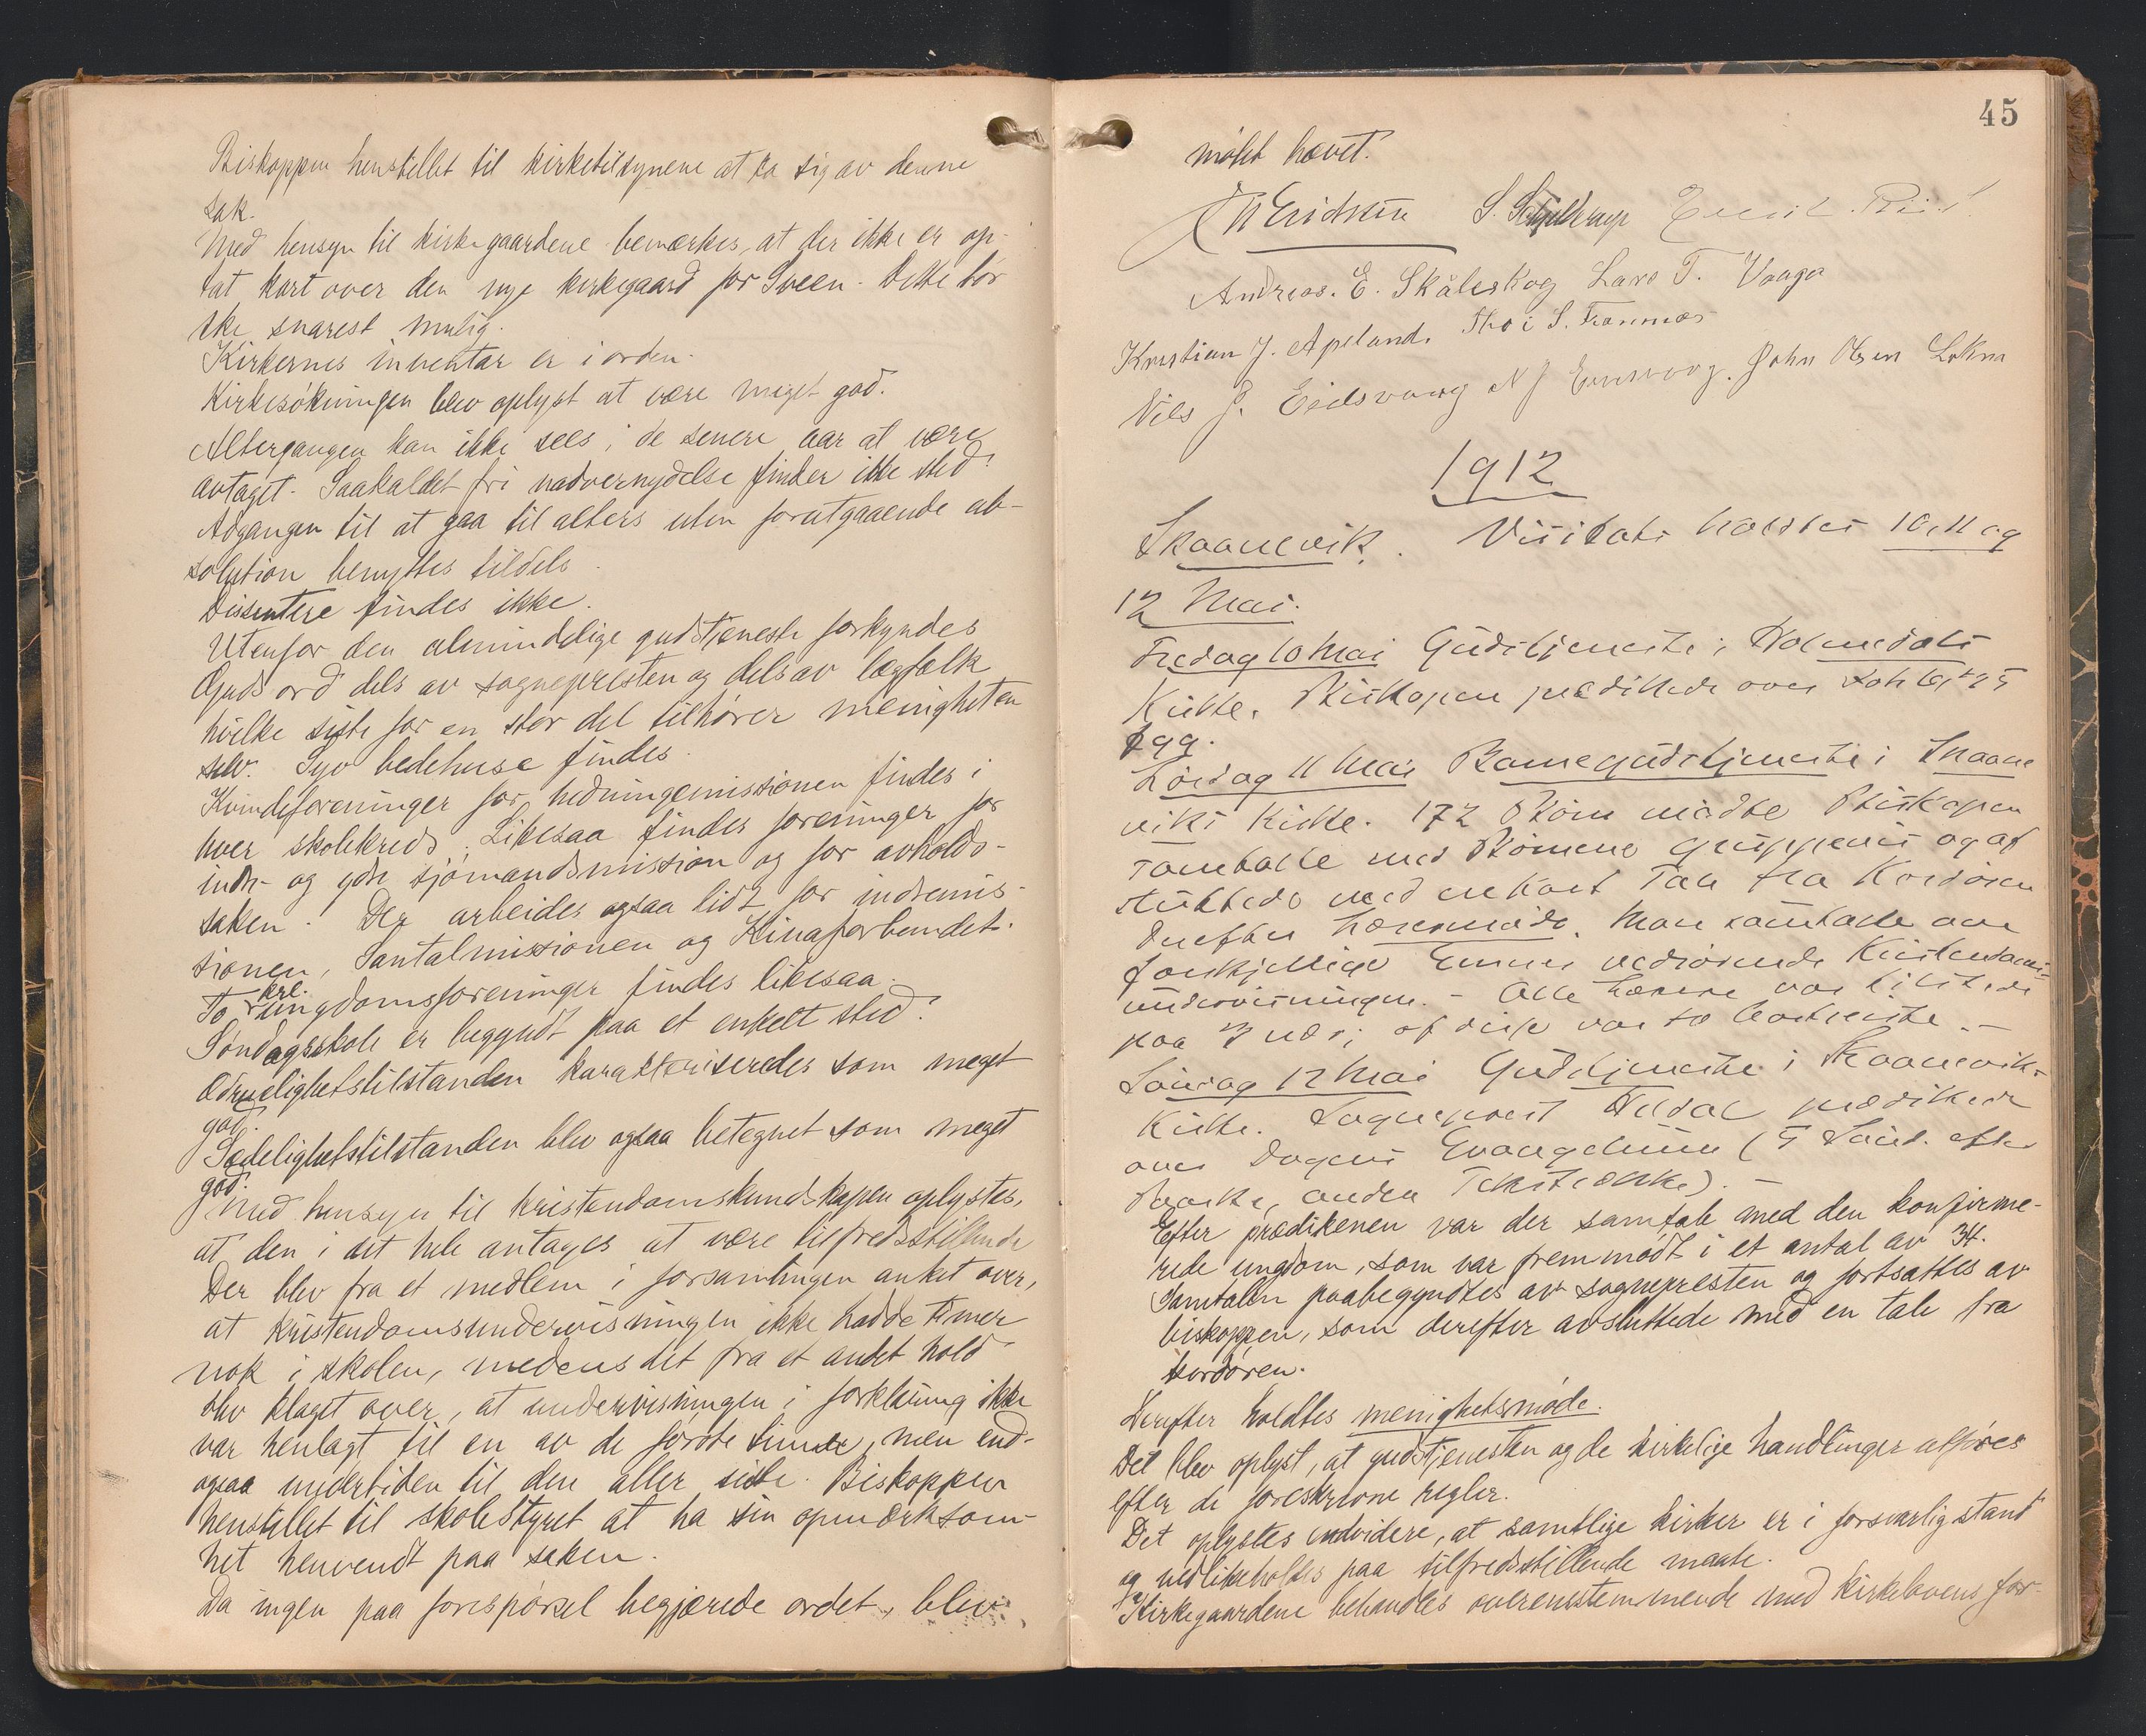 Biskoppen henstillet til kirketilsynene at ta sig av denne
sak.
Med hensyn til kirkegaardene bemærkes, at der ikke er op-
tat kart over den nye kirkegaard for Sveen. Dette bør
ske snarest mulig.
Kirkernes inventar er i orden.
Kirkesøkningen blev oplyst at være meget god.
Altergangen kan ikke sees i de senere aar at være
avtaget. Saakaldet fri nadvernydelse finder ikke sted.
Adgangen til at gaa til alters uten forutgaaende ab-
solution benyttes tildels.
Dissentere findes ikke.
Utenfor den almindelige gudstjeneste forkyndes
Guds ord dels av sognepresten og dels av lægfolk
hvilke siste for en stor del tilhører menigheten
selv. Syv bedehuse findes.
Kvindeforeninger for hedningemissionen findes i
hver skolekreds. Likesaa findes foreninger for
indre- og ydre sjømandsmission og for avholds-
saken. Der arbeides ogsaa lidt for indremis-
sionen, Santalmissionen og Kinaforbundet.
To krl. ungdomsforeninger findes likesaa.
Søndagsskole er begyndt paa et enkelt sted.
Ædruelighetstilstanden karakteriseredes som meget
god.
Sædelighetstilstanden blev ogsaa betegnet som meget
god.
Med hensyn til kristendomskundskapen oplystes,
at den i det hele antages at være tilfredsstillende
Der blev fra et medlem i forsamlingen anket over,
at kristendomsundervisningen ikke hadde timer
nok i skolen, medens det fra et andet hold
blev klaget over, at undervisningen i forklaring ikke
var henlagt til en av de første timer, men end-
ogsaa undertiden til den aller siste. Biskoppen
henstillet til skolestyret at ha sin opmærksom-
het henvendt paa saken.
Da ingen paa forespørsel begjærede ordet, blev
45
møtet hævet.
Erichsen S. Schjelderup
Andreas. E. Skåleskog Lars T. Vaage
Kristian J. Apeland. S.
Nils J. Eidsvaag N J Emmevaag. John Olsen Lokna
1912
Skaanevik. Visitats holdtes 10, 11 og
12 Mai.
Fredag 10 Mai Gudstjeneste i Holmedals
Kirke. Biskopen prædikede over Joh
fgg.
Lørdag 11 Mai Barnegudstjeneste i Skaane
viks Kirke. 172 Børn mødte Biskopen
samtalte med Børnene gruppevis og af
sluttede med en kort Tale fra Kordøren
Derefter Læremøde. Man samtalte om
forskjellige Emner vedrørende Kristendoms-
undervisningen. - Alle Lærere var tilstede
paa nær; af disse var to
Søndag 12 Mai Gudstjeneste i Skaanevik-
Kirke. Sogneprest prædikede
over Dagens Evangelium (5 Sønd. efter
Paaske, anden Tekstrække). -
Efter prædikenen var der samtale med den konfirme-
rede ungdom, som var fremmødt i et antal av 34.
Samtalen paabegyndtes av sognepresten og fortsattes av
biskoppen, som derefter avsluttede med en tale fra
kordøren.
Derefter holdtes menighetsmøde.
Det blev oplyst, at gudstjenesten og de kirkelige handlinger utføres
efter de foreskrevne regler.
Det oplystes endvidere, at samtlige kirker er i forsvarlig stand
og vedlikeholdes paa tilfredsstillende maate.
Kirkegaardene behandles overensstemmende med kirkelovens for-